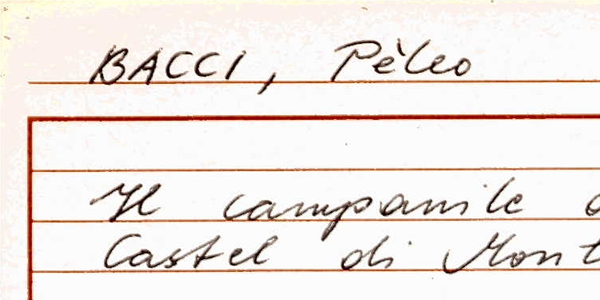 BACCI, Pèleo
Il campanile
Castel di Mont